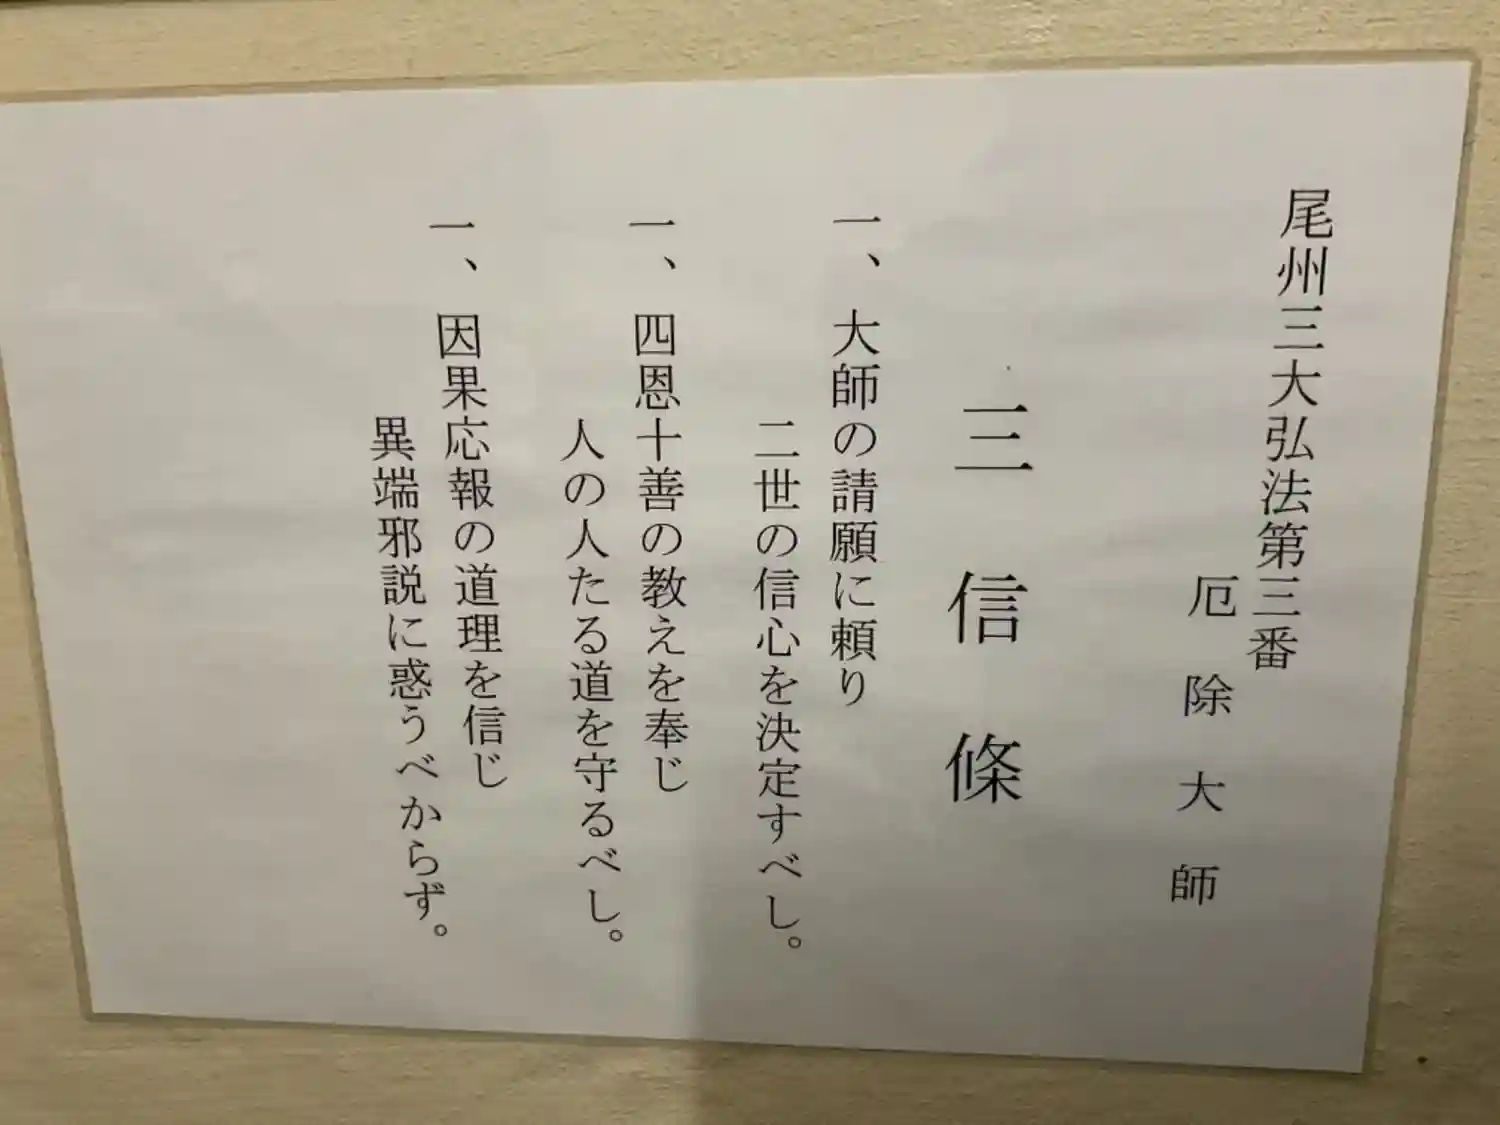 尾州三大弘法第三番
厄除大師
三信條
一、大師の請願に頼り
二世の信心を決定すべし。
一、四恩十善の教えを奉じ
人の人たる道を守るべし。
一、因果応報の道理を信じ
異端邪説に惑うべからず。